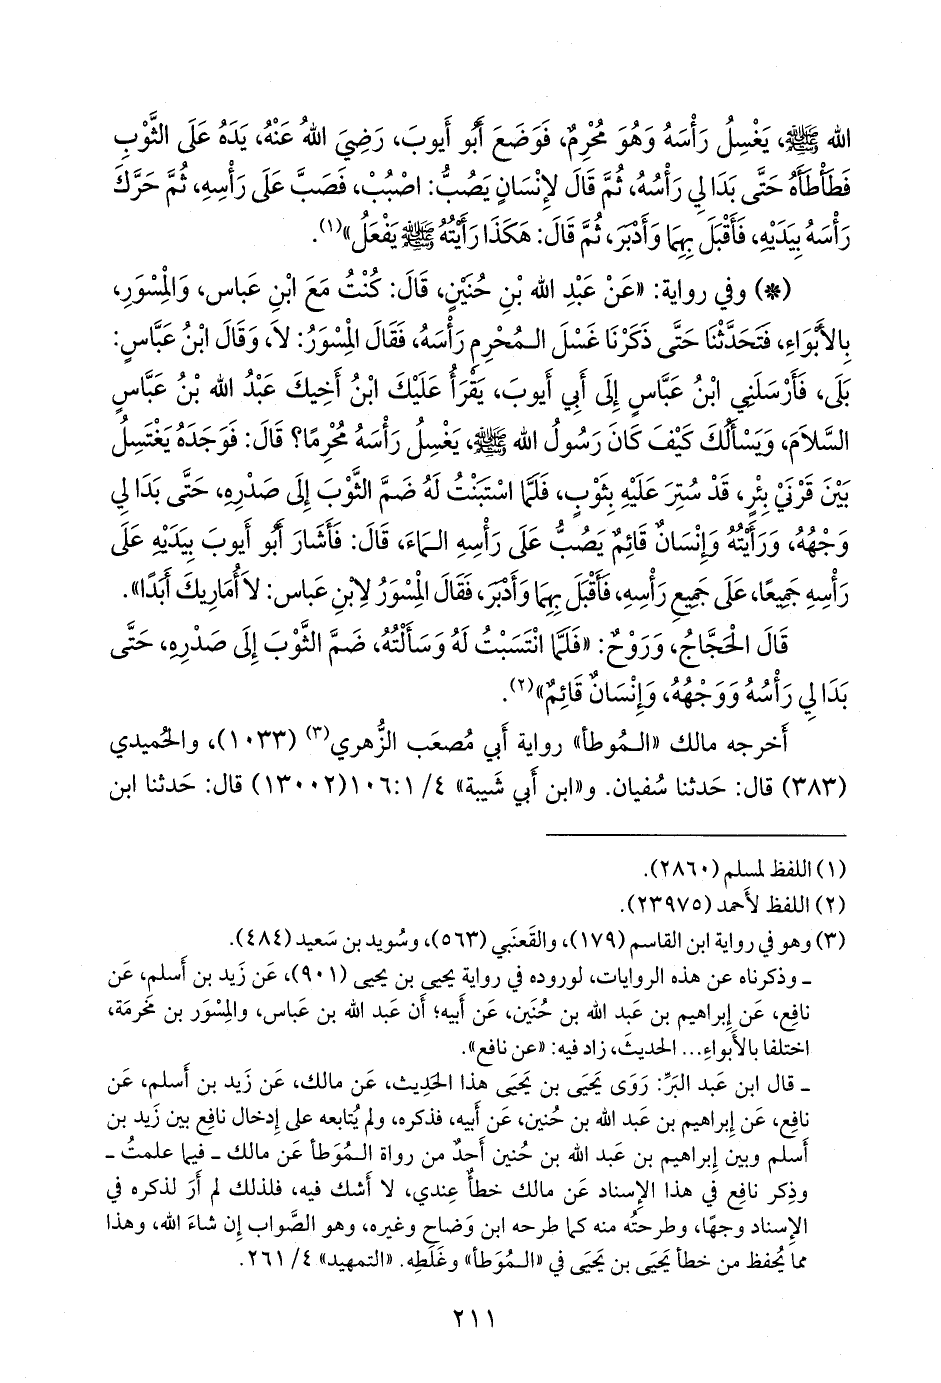 الله ﷺ، يَغْسِلُ رَأْسَهُ وَهُوَ مُحْرِمٌ، فَوَضَعَ أَبُو أَيوبَ، رَضِيَ اللهُ عَنْهُ، يَدَهُ عَلَى الثَّوْبِ
فَطَأْطَأَهُ حَتَّى بَدَا لِي رَأْسُهُ، ثُمَّ قَالَ لِإِنْسَانٍ يَصُبُّ: اصْبُبْ، فَصَبَّ عَلَى رَأْسِهِ، ثُمَّ حَرَّكَ
رَأْسَهُ بِيَدَيْهِ، فَأَقْبَلَ بِهِمَا وَأَدْبَرَ، ثُمَّ قَالَ: هَكَذَا رَأَيْتُهُ ﷺ يَفْعَلُ»(١).
(*) وفي رواية: «عَنْ عَبْدِ الله بْنِ حُنَيْنٍ، قَالَ: كُنْتُ مَعَ ابْنِ عَباس، وَالْمِسْوَرِ،
بِالأَبْوَاءِ، فَتَحَدَّثْنَا حَتَّى ذَكَرْنَا غَسْلَ الـمُحْرِمِ رَأْسَهُ، فَقَالَ الْمِسْوَرُ: لاَ، وَقَالَ ابْنُ عَبَّاسٍ:
بَلَى، فَأَرْسَلَنِي ابْنُ عَبَّاسٍ إِلَى أَبِي أَيوبَ، يَقْرَأُ عَلَيْكَ ابْنُ أَخِيكَ عَبْدُ الله بْنُ عَبَّاسٍ
السَّلاَمَ، وَيَسْأَلُكَ كَيْفَ كَانَ رَسُولُ الله ﷺ، يَغْسِلُ رَأْسَهُ مُحْرِمًا؟ قَالَ: فَوَجَدَهُ يَغْتَسِلُ
بَيْنَ قَرْنَيْ بِئْرٍ، قَدْ سُتِرَ عَلَيْهِ بِثَوْبٍ، فَلَمَّا اسْتَبَنْتُ لَهُ ضَمَّ الثَّوْبَ إِلَى صَدْرِهِ، حَتَّى بَدَا لِي
وَجْهُهُ، وَرَأَيْتُهُ وَإِنْسَانٌ قَائِمٌ يَصُبُّ عَلَى رَأْسِهِ الـمَاءَ، قَالَ: فَأَشَارَ أَبُو أَيوبَ بِيَدَيْهِ عَلَى
رَأْسِهِ جَمِيعًا، عَلَى جَمِيعِ رَأْسِهِ، فَأَقْبَلَ بِهِمَا وَأَدْبَرَ، فَقَالَ الْمِسْوَرُ لِابْنِ عَباس: لاَ أُمَارِيكَ أَبَدًا».
قَالَ الْحَجَّاجُ، وَرَوْحٌ: «فَلَمَّا انْتَسَبْتُ لَهُ وَسَأَلْتُهُ، ضَمَّ الثَّوْبَ إِلَى صَدْرِهِ، حَتَّى
بَدَا لِي رَأْسُهُ وَوَجْهُهُ، وَإِنْسَانٌ قَائِمٌ»(٢).
أَخرجه مالك «الـمُوطأ» رواية أَبي مصعَب الزُّهري(٣) (١٠٣٣)، والحُميدي
(٣٨٣) قال: حَدثنا سُفيان. و«ابن أَبي شَيبة» ٤/ ١٠٦:١(١٣٠٠٢) قال: حَدثنا ابن
(١) اللفظ لمسلم (٢٨٦٠).
(٢) اللفظ لأَحمد (٢٣٩٧٥).
(٣) وهو في رواية ابن القاسم (١٧٩)، والقَعنَبي (٥٦٣)، وسُويد بن سَعيد (٤٨٤).
ـ وذكرناه عن هذه الروايات، لوروده في رواية يحيى بن يحيى (٩٠١)، عَن زَيد بن أَسلم، عَن
نافِع، عَن إِبراهيم بن عَبد الله بن حُنَين، عَن أَبيه؛ أَن عَبد الله بن عَباس، والمِسْوَر بن مَخرمَة،
اختلفا بالأَبواءِ... الحديثَ، زاد فيه: «عن نافع».
ـ قال ابن عَبد البَرِّ: رَوَى يَحيَى بن يَحيَى هذا الحَدِيث، عَن مالك، عَن زَيد بن أَسلم، عَن
نافِع، عَن إِبراهيم بن عَبد الله بن حُنين، عَن أَبيه، فذكره، ولم يُتابعه على إِدخال نافِع بين زَيد بن
أَسلم وبين إِبراهيم بن عَبد الله بن حُنين أَحدٌ من رواة الـمُوَطأ عَن مالك ـ فيما علمتُ ـ
وذِكر نافِع في هذا الإِسناد عَن مالك خطأٌ عِندي، لا أَشك فيه، فلذلك لم أَرَ لذكره في
الإِسناد وجهًا، وطرحتُه منه كما طرحه ابن وَضاح وغيره، وهو الصَّواب إِن شاءَ الله، وهذا
مما يُحفظ من خطأ يَحيَى بن يَحيَى في «الـمُوَطأ» وغَلَطِه. «التمهيد» ٤/ ٢٦١.
٢١١